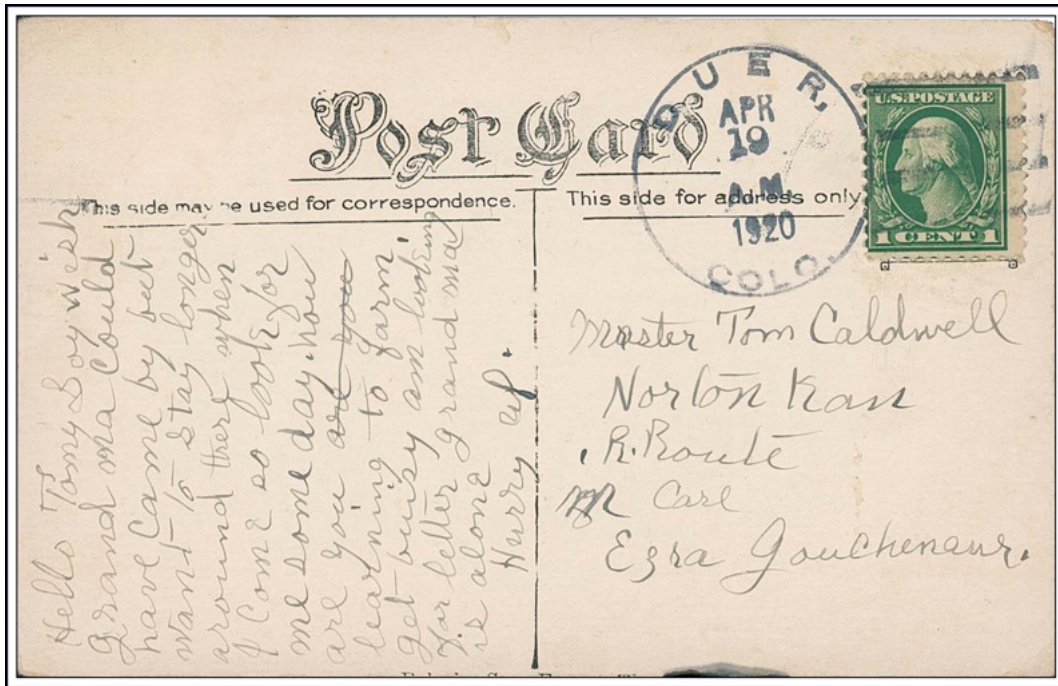 Post Card
This side may be used for correspondence.
This side for address only
DUER,
APR
19
A.M.
1920
COLO.
U.S. POSTAGE
1 CENT 1
Hello Tomy Boy wish
grand ma could
have came by but
want to stay longer
around there when
I come so look for
me some day how
are you are you
learning to farm
get busy am looking
for letter grand ma
is alone
Hurry up.
Master Tom Caldwell
Norton Kan
R. Route
Care
Ezra Gouchenaur.